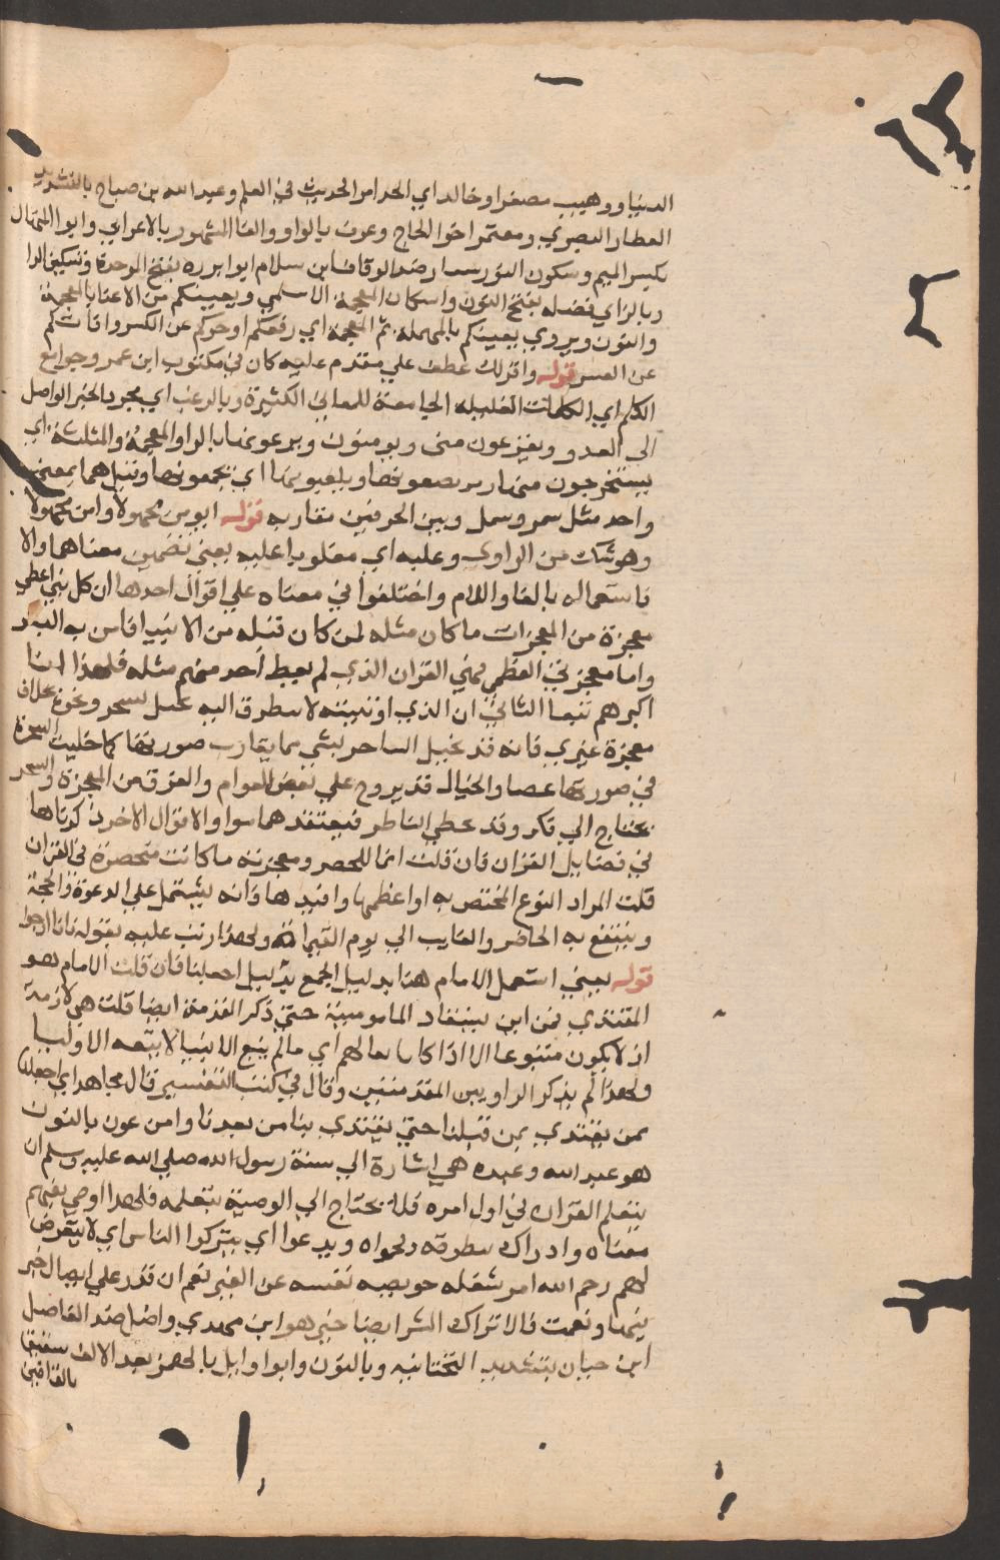 الدنيا ووهيب مصغرا وخالد اي الحذا من الحديث في العلم وعبد الله بن صباح بالتشديد
العطار البصري ومعتمر اخو الحاج وعوف بالواو والفا المشهور بالاعرابي وابو المنهال
بكسر الميم وسكون النون سيار ضد الوقاف ابن سلامة ابو برزه بفتح الموحدة وتسكين الرا
وبالزاي نضله بفتح النون واسكان المعجمة الاسلمي ويغنيكم من الاغنا بالمعجمة
والنون ويروي نعشكم بالمهملة ثم المعجمة اي رفعكم او جبركم عن الكسر واقامكم
عن العسر قوله واقر لك عطف علي مقدم عليه كان في مكتوب ابن عمر وجوامع
الكلم اي الكلمات القليله الجامعة للمعاني الكثيرة وبالرعب اي بمجرد الخبر الواصل
الى العدو ويفزعون مني ويومنون ويرغونها بالراو المعجمة والمثلثة اي
يستخرجون منها ويرضعونها ويلغونها اي يجمعونها وقيل هما بمعني
واحد مثل سمر وسمل وبين الحرفين مقاربه قوله اومن مجهولا وامن مجهولا
وهو شك من الراوي وعليه اي مغلوبا عليه يعني تضمين معناها والا
فاستعماله بالبا واللام واختلفوا في معناه علي اقوال احدها ان كل نبي اعطي
معجزة من المعجزات ما كان مثله لمن كان قبله من الانبيا فامن به البشر
واما معجزتي العظمي فهي القران الذي لم يعط احد منهم مثله فلهذا انا
اكثرهم تبعا الثاني ان الذي اوتيته لا يتطرق اليه تخييل بسحر ونحوه بخلاف
معجزة غيري فانه قد يخيل الساحر بشي مما يقارب صورتها كما خيلت السحرة
في صورة عصا والخيال قد يروج علي بعض العوام والفرق بين المعجزة والسحر
يحتاج الي فكر وقد يخطي الناظر فيعتقدهما سوا والاقوال الاخر ذكرناها
في فضايل القران فان قلت انما للحصر ومعجزته ما كانت منحصرة في القران
قلت المراد النوع المختص به او اعظمها وافيدها فانه يشتمل علي الدعوة والحجة
وينتفع به الحاضر والغايب الي يوم القيامة ولهذا رتب عليه بقوله فانا ارجوا
قوله يعني استعمل الامام هنا بدليل الجمع بدليل اجعلنا فان قلت الامام هو
المقتدي فمن اين يستفاد المامومية حتي ذكر المقدمة ايضا قلت هي لازمة
اذ لا يكون متبوعا الا اذا كان تابعا لهم اي ما لم يتبع الانبيا لا يتبعه الاوليا
ولهذا لم يذكر الراو بين المقدمتين وقال في كتب التفسير قال مجاهد اي اجعلنا
ممن يقتدي بمن قبلنا حتي يقتدي بنا من بعدنا وابن عون بالنون
هو عبد الله وهذه هي اشارة الي سنة رسول الله صلي الله عليه وسلم ان
يتعلم القران في اول امره فلا يحتاج الي الوصية بتعلمه فلهذا اوصي بفهم
معناه وادراك منطوقه وفحواه ويدعوا اي يتركوا الناس اي لا يتعرض
لهم رحم الله امرا شغله خويصة نفسه عن الغير نعم ان قدر علي ايصال خير
فبها ونعمت فالا ترك الشر ايضا خير هو ابن مهدي واصل ضد الفاصل
ابن حيان بتشديد التحتانيه وبالنون وابو وايل بالهمز بعد الالف شقيق
بالقافين